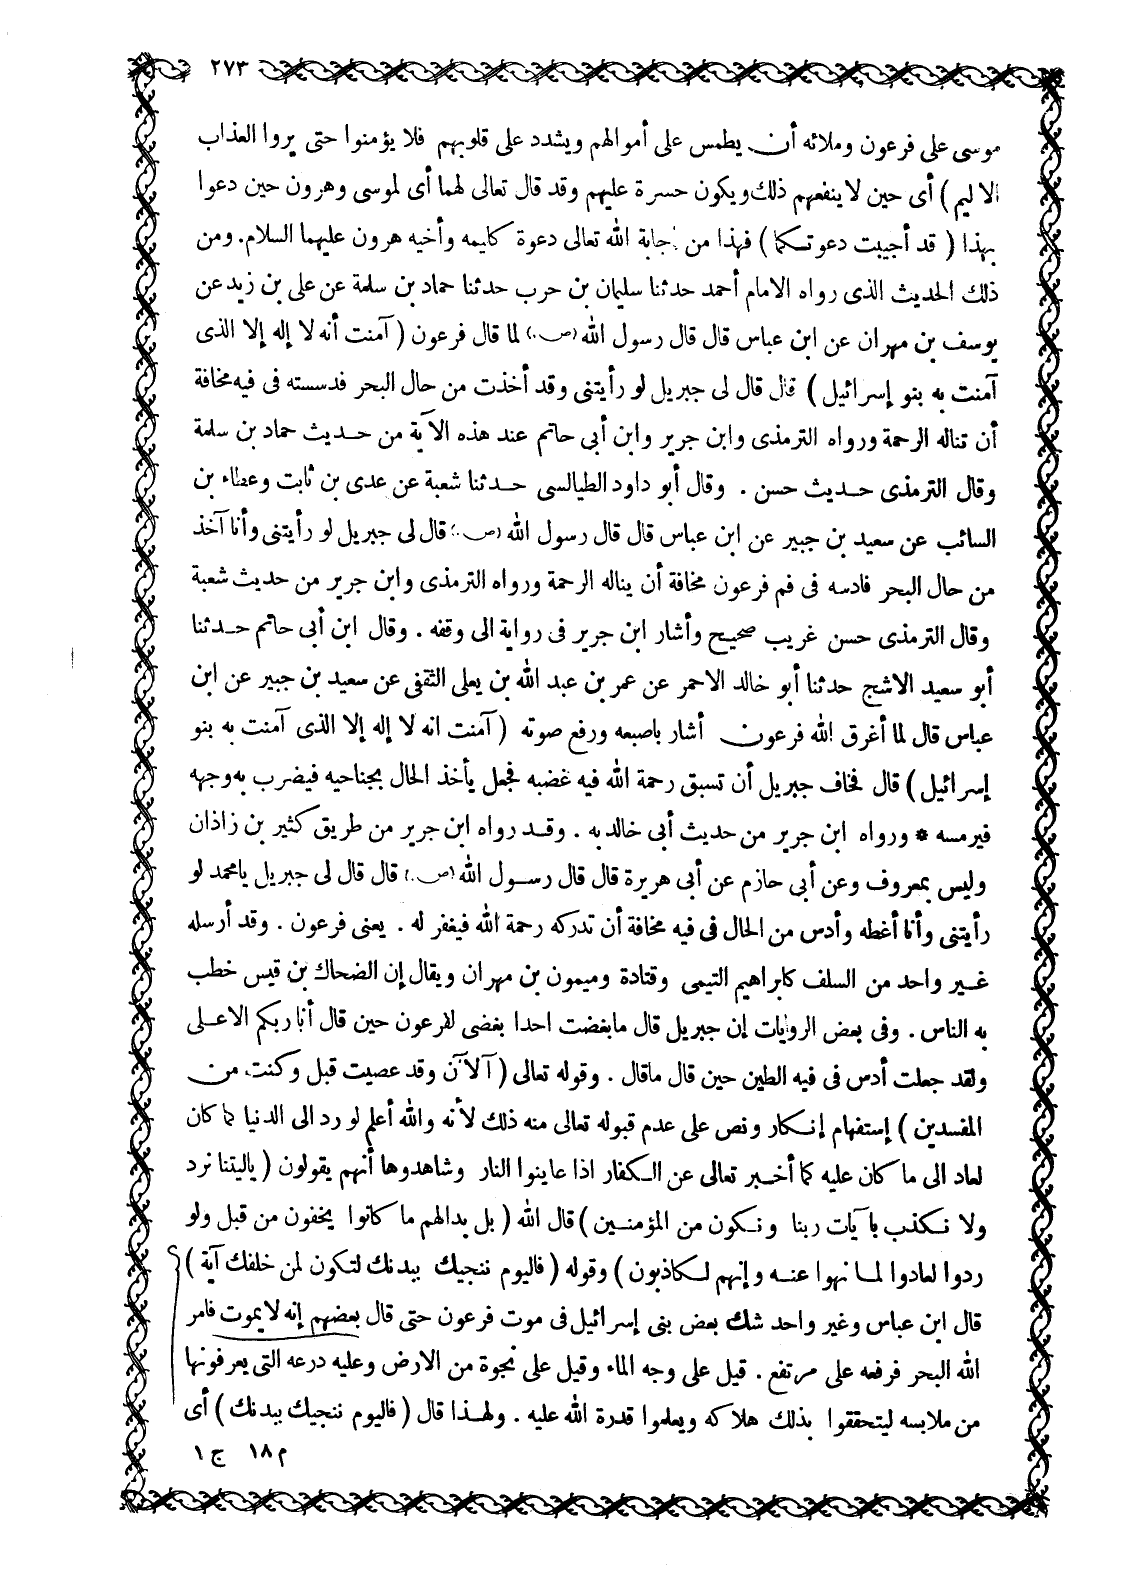 ٢٧٣
موسى على فرعون وملائه أن يطمس على أموالهم ويشدد على قلوبهم فلا يؤمنوا حتى يروا العذاب
الاليم ) أى حين لا ينفعهم ذلك ويكون حسرة عليهم وقد قال تعالى لهما أى لموسى وهرون حين دعوا
بهذا ( قد أجيبت دعوتكما ) فهذا من إجابة الله تعالى دعوة كليمه وأخيه هرون عليهما السلام. ومن
ذلك الحديث الذى رواه الامام أحمد حدثنا سليمان بن حرب حدثنا حماد بن سلمة عن على بن زيد عن
يوسف بن مهران عن ابن عباس قال قال رسول الله (ص.) لما قال فرعون ( آمنت أنه لا إله إلا الذى
آمنت به بنو إسرائيل ) قال قال لى جبريل لو رأيتنى وقد أخذت من حال البحر فدسسته فى فيه مخافة
أن تناله الرحمة ورواه الترمذى وابن جرير وابن أبى حاتم عند هذه الآية من حديث حماد بن سلمة
وقال الترمذى حديث حسن . وقال أبو داود الطيالسى حدثنا شعبة عن عدى بن ثابت وعطاء بن
السائب عن سعيد بن جبير عن ابن عباس قال قال رسول الله (ص.) قال لى جبريل لو رأيتنى وأنا آخذ
من حال البحر فادسه فى فم فرعون مخافة أن يناله الرحمة ورواه الترمذى وابن جرير من حديث شعبة
وقال الترمذى حسن غريب صحيح وأشار ابن جرير فى رواية الى وقفه . وقال ابن أبى حاتم حدثنا
أبو سعيد الاشج حدثنا أبو خالد الاحمر عن عمر بن عبد الله بن يعلى الثقفى عن سعيد بن جبير عن ابن
عباس قال لما أغرق الله فرعون أشار باصبعه ورفع صوته ( آمنت انه لا إله إلا الذى آمنت به بنو
إسرائيل ) قال فخاف جبريل أن تسبق رحمة الله فيه غضبه فجعل يأخذ الحال بجناحيه فيضرب به وجهه
فيرمسه * ورواه ابن جرير من حديث أبى خالد به . وقد رواه ابن جرير من طريق كثير بن زاذان
وليس بمعروف وعن أبى حازم عن أبى هريرة قال قال رسول الله (ص.) قال قال لى جبريل يامحمد لو
رأيتنى وأنا أغطه وأدس من الحال فى فيه مخافة أن تدركه رحمة الله فيغفر له . يعنى فرعون . وقد أرسله
غير واحد من السلف كابراهيم التيمى وقتادة وميمون بن مهران ويقال إن الضحاك بن قيس خطب
به الناس . وفى بعض الروايات إن جبريل قال مابغضت احدا بغضى لفرعون حين قال أنا ربكم الاعلى
ولقد جعلت أدس فى فيه الطين حين قال ماقال . وقوله تعالى ( آلآن وقد عصيت قبل وكنت من
المفسدين ) إستفهام إنكار ونص على عدم قبوله تعالى منه ذلك لأنه والله أعلم لو رد الى الدنيا كما كان
لعاد الى ما كان عليه كما أخبر تعالى عن الكفار اذا عاينوا النار وشاهدوها أنهم يقولون ( ياليتنا نرد
ولا نكذب بآيات ربنا ونكون من المؤمنين ) قال الله ( بل بدالهم ما كانوا يخفون من قبل ولو
ردوا لعادوا لما نهوا عنه وإنهم لكاذبون ) وقوله ( فاليوم ننجيك ببدنك لتكون لمن خلفك آية )
قال ابن عباس وغير واحد شك بعض بنى إسرائيل فى موت فرعون حتى قال بعضهم إنه لا يموت فامر
الله البحر فرفعه على مرتفع . قيل على وجه الماء وقيل على نجوة من الارض وعليه درعه التى يعرفونها
من ملابسه ليتحققوا بذلك هلاكه ويعلموا قدرة الله عليه . ولهذا قال ( فاليوم ننجيك ببدنك ) أى
م ١٨ ج ١